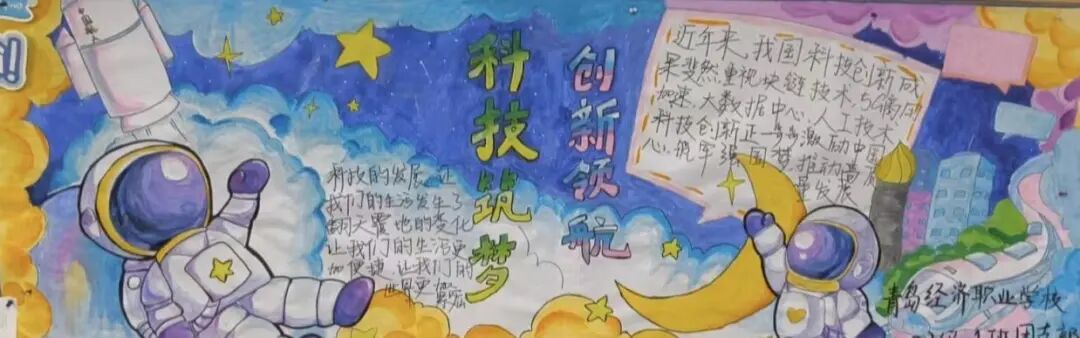 科技筑梦
创新领航
近年来,我国科技创新成
果斐然,重视块链技术,5G商用
加速、大数据中心、人工技术
科技创新正 激动中国
心,筑军强国梦,推动高质
量发展
科技的发展、让
我们的生活发生了
翻天覆地的变化
让我们的生活更
加便捷,让我们的
世界更加
青岛经济职业学校
班团支部